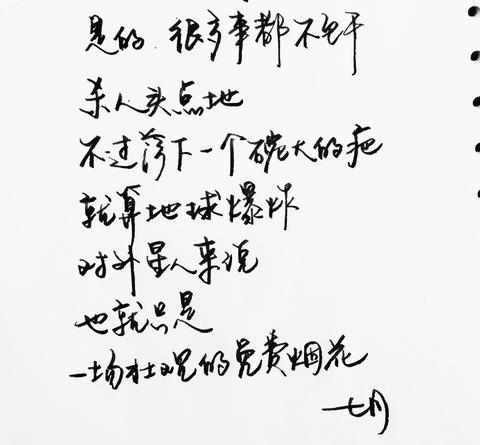 是的 很多事都不至于
杀人头点地
不过落下一个碗大的疤
就算地球爆炸
对外星人来说
也就只是
一场壮观的免费烟花
七月